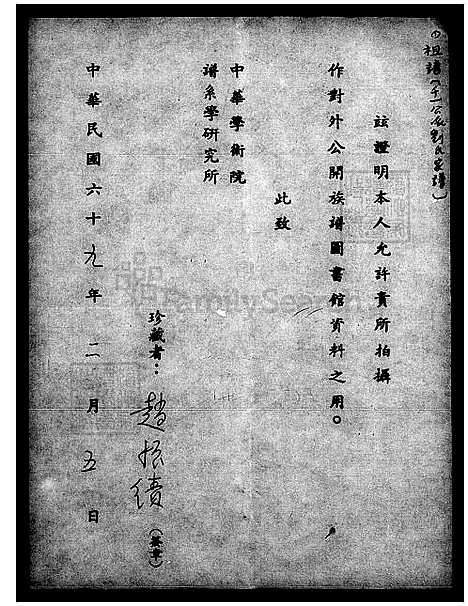 祖譜(十一公派劉氏宗譜)
玆證明本人允許貴所拍攝
作對外公開族譜圖書館資料之用。
此致
中華學術院
譜系學研究所
珍藏者:趙振績(簽章)
中華民國六十九年二月五日
FamilySearch